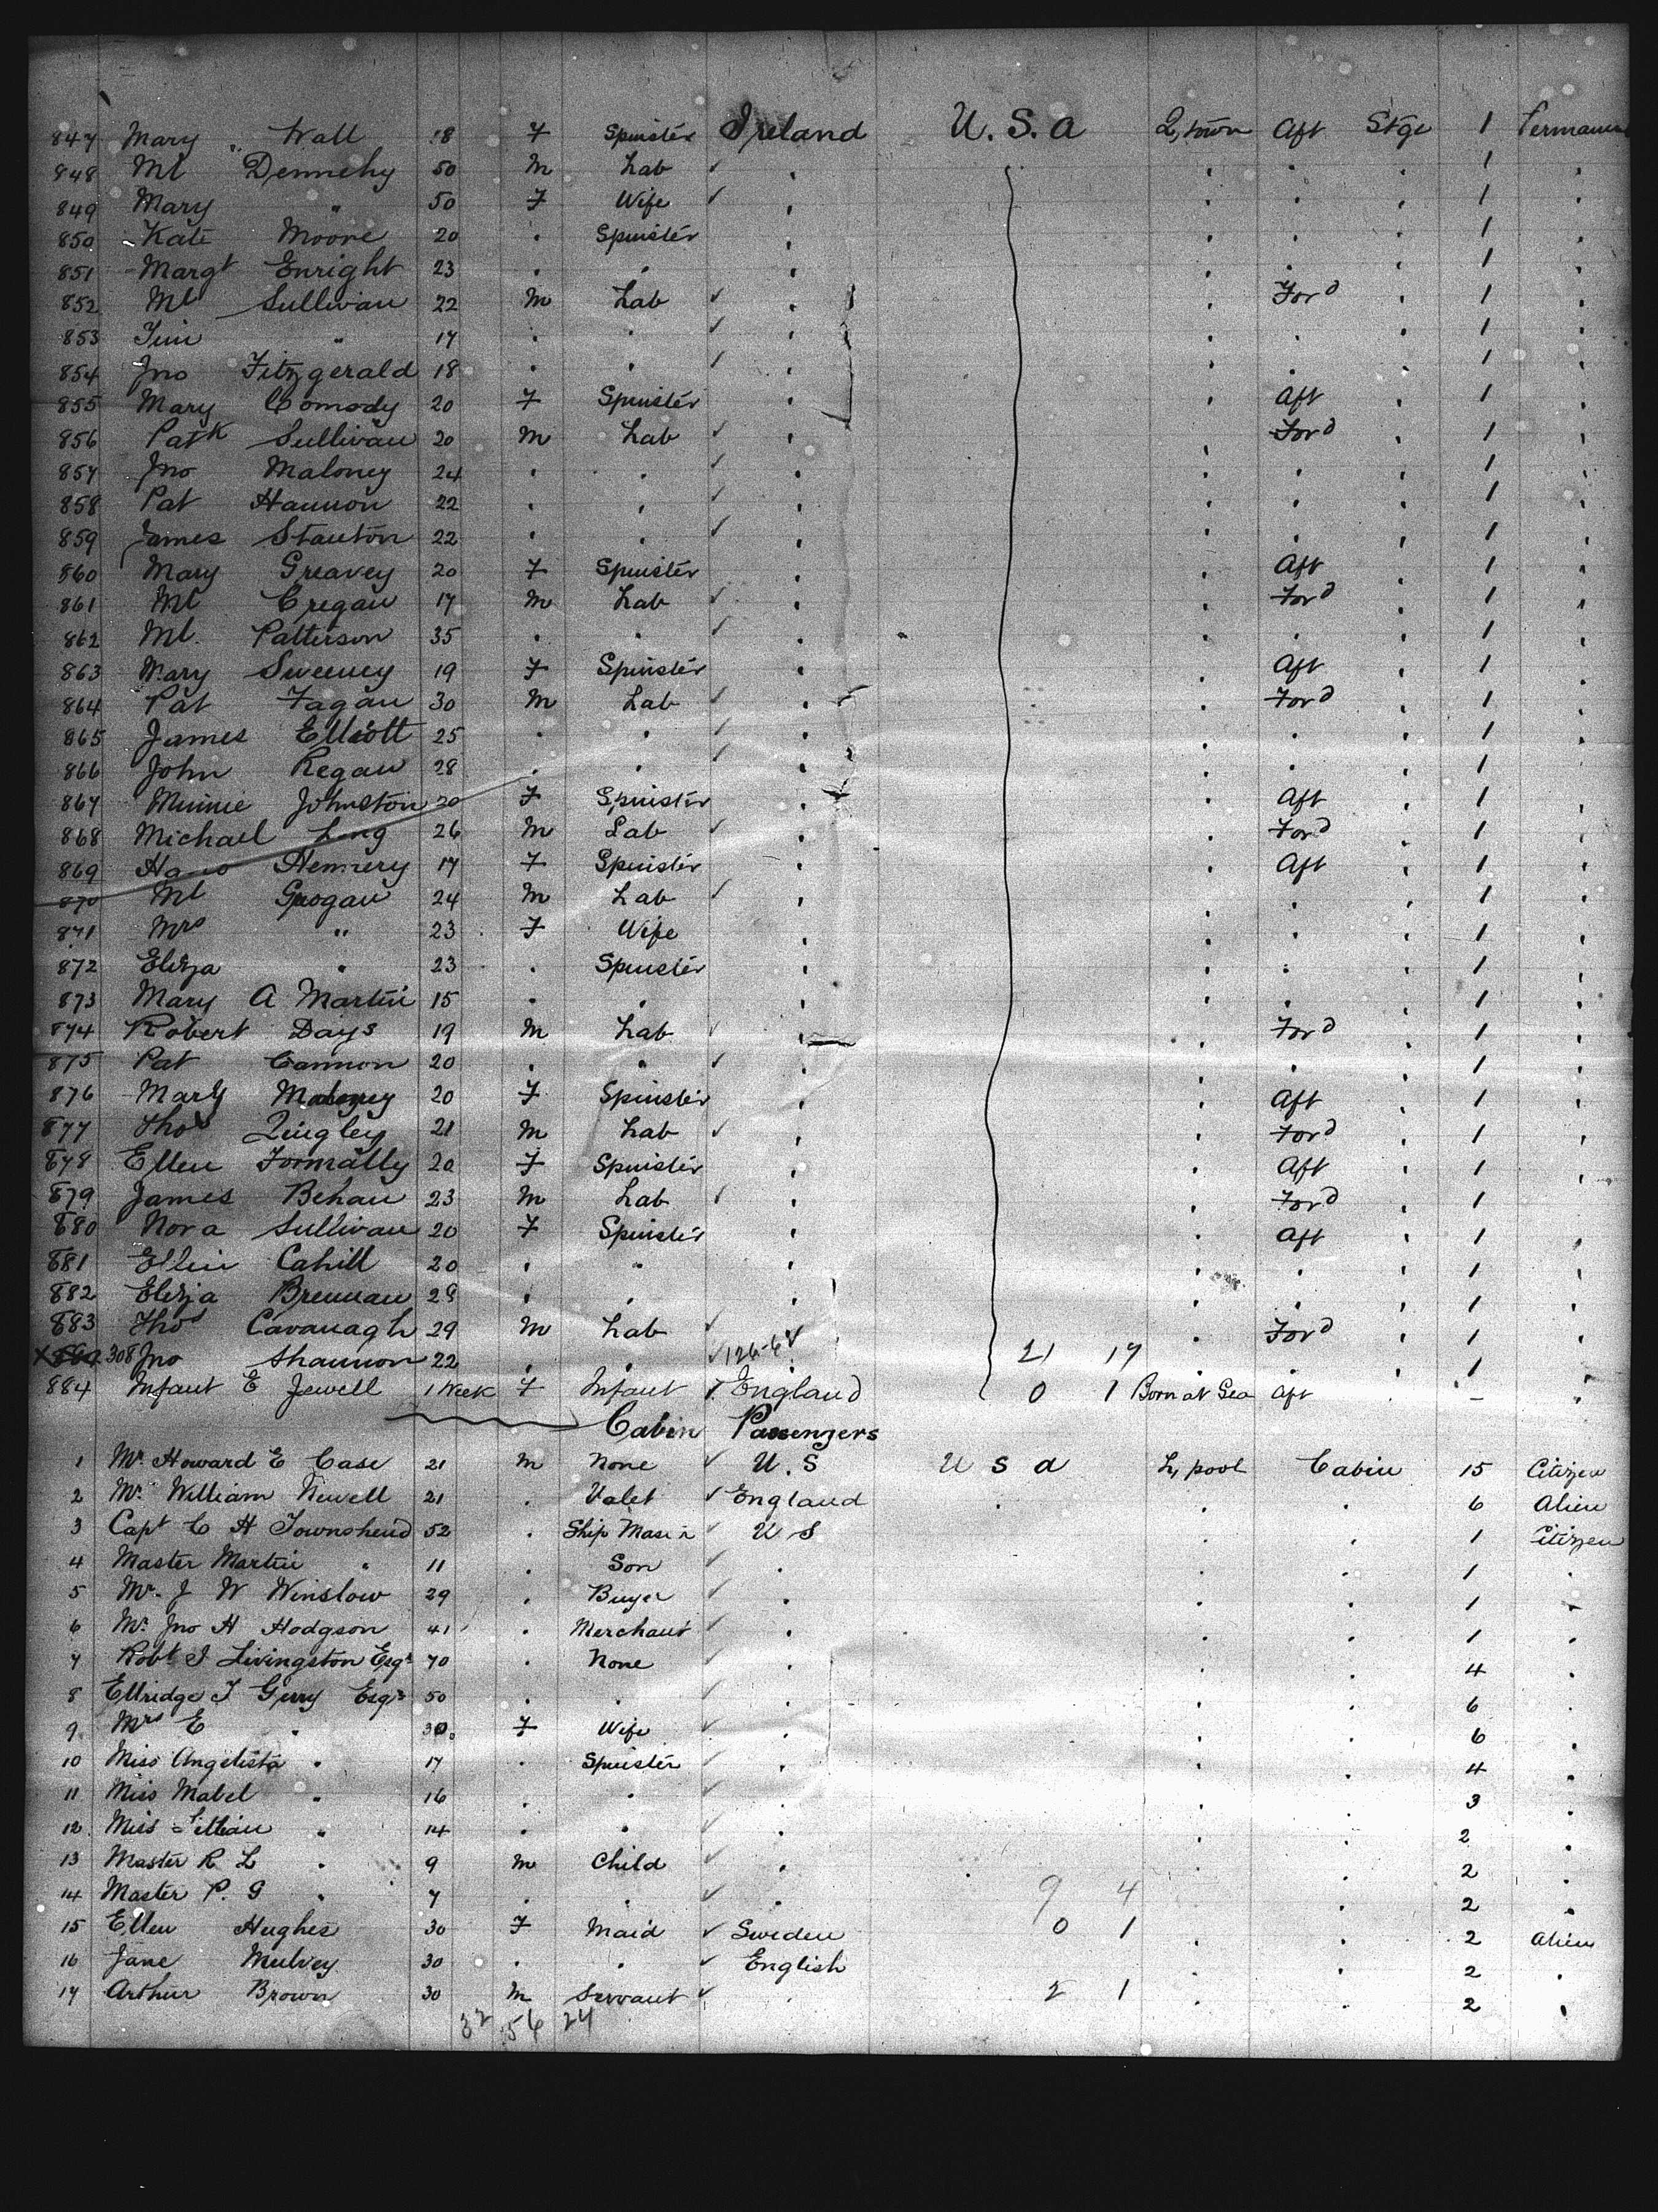 847 Mary Wall 18 F Spinster Ireland U.S.A Q,town Aft Stge 1 Permanent
848 Ml Dennehy 50 M Lab ✓ 1
849 Mary " 50 F Wife ✓ 1
850 Kate Moore 20 . Spinster 1
851 Margt Enright 23 . . 1
852 Ml Sullivan 22 M Lab ✓ Ford 1
853 Tim " 17 . . ✓ 1
854 Jno Fitzgerald 18 . . ✓ 1
855 Mary Comody 20 F Spinster Aft 1
856 Patk Sullivan 20 M Lab ✓ Ford 1
857 Jno Maloney 24 . . ✓ 1
858 Pat Hannon 22 . . ✓ 1
859 James Stanton 22 . . ✓ 1
860 Mary Greavey 20 F Spinster Aft 1
861 Ml Cregan 17 M Lab ✓ Ford 1
862 Ml. Patterson 35 . . ✓ 1
863 Mary Sweeney 19 F Spinster Aft 1
864 Pat Fagan 30 M Lab ✓ Ford 1
865 James Elliott 25 . . ✓ 1
866 John Regan 28 . . ✓ 1
867 Minnie Johnston 20 F Spinster Aft 1
868 Michael Long 26 M Lab ✓ Ford 1
869 Hemery 17 F Spinster Aft 1
870 Ml Grogan 24 M Lab ✓ 1
871 Mrs " 23 F Wife 1
872 Eliza " 23 . Spinster 1
873 Mary A Martin 15 . . 1
874 Robert Days 19 M Lab ✓ Ford 1
875 Pat Cannon 20 . . ✓ 1
876 Mary Maloney 20 F Spinster Aft 1
877 Thos Quigley 21 M Lab ✓ Ford 1
878 Ellen Formally 20 F Spinster Aft 1
879 James Behan 23 M Lab ✓ Ford 1
880 Nora Sullivan 20 F Spinster Aft 1
881 Ellen Cahill 20 . " 1
882 Eliza Brennan 28 . . 1
883 Thos Cavanagh 29 M Lab ✓ Ford 1
308 Jno Shannon 22 . . ✓ 126-6 ✓ 21 17 1
884 Infant E Jewell 1 Week F Infant ✓ England 0 1 Born at Sea Aft –
Cabin Passengers
1 Mr. Howard E Case 21 M None ✓ U.S U S A L,pool Cabin 15 Citizen
2 Mr. William Newell 21 . Valet ✓ England . 6 Alien
3 Capt C H Townshend 52 . Ship Mas r ✓ U S 1 Citizen
4 Master Martin " 11 . Son ✓ 1
5 Mr. J W Winslow 29 . Buyer ✓ 1
6 Mr. Jno H Hodgson 41 . Merchant ✓ 1
7 Robt J Livingston Esqr 70 . None ✓ 4
8 Ellridge T Gerry Esqr 50 . . ✓ 6
9 Mrs E " 30 F Wife ✓ 6
10 Miss Angelista " 17 . Spinster ✓ 4
11 Miss Mabel " 16 . . ✓ 3
12 Miss Lillian " 14 . . ✓ 2
13 Master R L " 9 M Child ✓ 2
14 Master P. G " 7 . . ✓ 9 4 2
15 Ellen Hughes 30 F Maid ✓ Sweden 0 1 2 Alien
16 Jane Mulvey 30 . . ✓ English 2
17 Arthur Brown 30 M Servant ✓ . 2 1 2
32 56 24